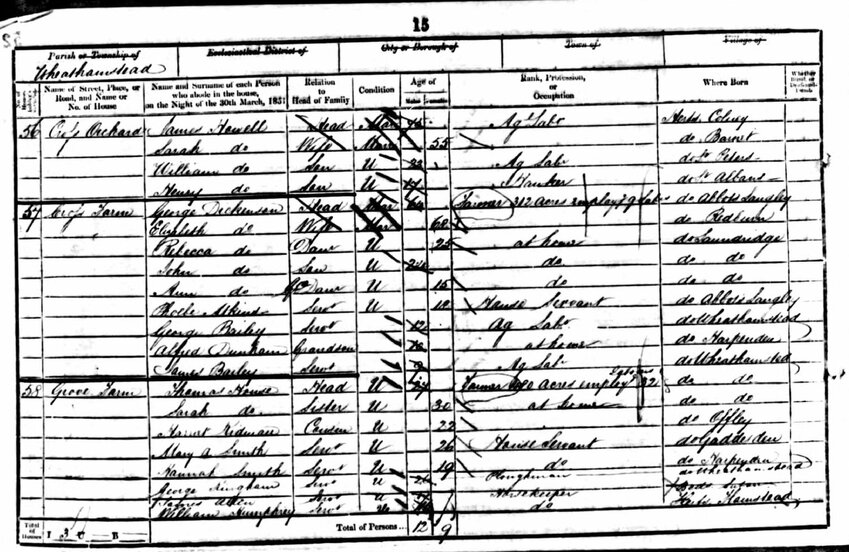 15
Parish or Township of Ecclesiastical District of City or Borough of Town of Village of
Wheathamstead
Name of Street, Place, or Road, and Name or No. of House Name and Surname of each Person who abode in the house, on the Night of the 30th March, 1851 Relation to Head of Family Condition Age of Males Females Rank, Profession, or Occupation Where Born Whether Blind, or Deaf-and-Dumb
56 Orchard James Howell Head Mar Ag Lab Herts Colney
Sarah do Wife Mar 55 do Barnet
William do Son U 22 Ag Lab do St Peters
Henry do Son U 17 Hawker do St Albans
57 Farm George Dickenson Head Mar Farmer 312 acres employg 9 Labs do Abbots Langley
Elizabeth do Wife Mar do Redburn
Rebecca do Daur U 25 at home do Sandridge
John do Son U do do do
Ann do Daur U 15 do do do
Phoebe Servt U House Servant do Abbots Langley
George Bailey Servt 12 Ag Lab do Wheathamstead
Alfred Dunham Grandson at home do Harpenden
James Bailey Servt Ag Lab do Wheathamstead
58 Grove Farm Thomas House Head U 27 Farmer acres employg Labourers do do
Sarah do Sister U 30 at home do do
Harriet Kidman Cousin U 22 do Offley
Mary A Smith Servt U 26 House Servant do Gaddesden
Hannah Smith Servt U 19 do do Harpenden
George Servt U Ploughman do Wheathamstead
James Allen Servt U Horsekeeper Beds
William Humphrey Servt do Herts
Total of Houses I 3 U B Total of Persons... 12 9